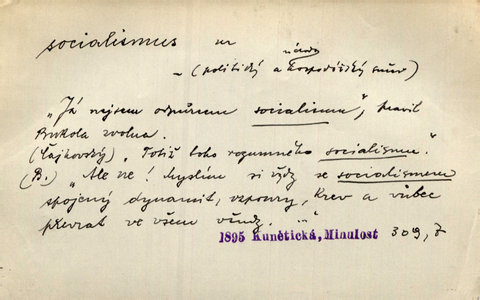 socialismus m
– (politický a hospodářský směr)
„Já nejsem odpůrcem socialismu", pravil
Bukola zvolna.
(Čajkovský) „Totiž toho rozumného socialismu."
(B.) „Ale ne! Myslím si vždy se socialismem
spojený dynamit, vzpoury, krev a vůbec
převrat ve všem všudy. ..."
1895 Kunětická, Minulost 309, 7